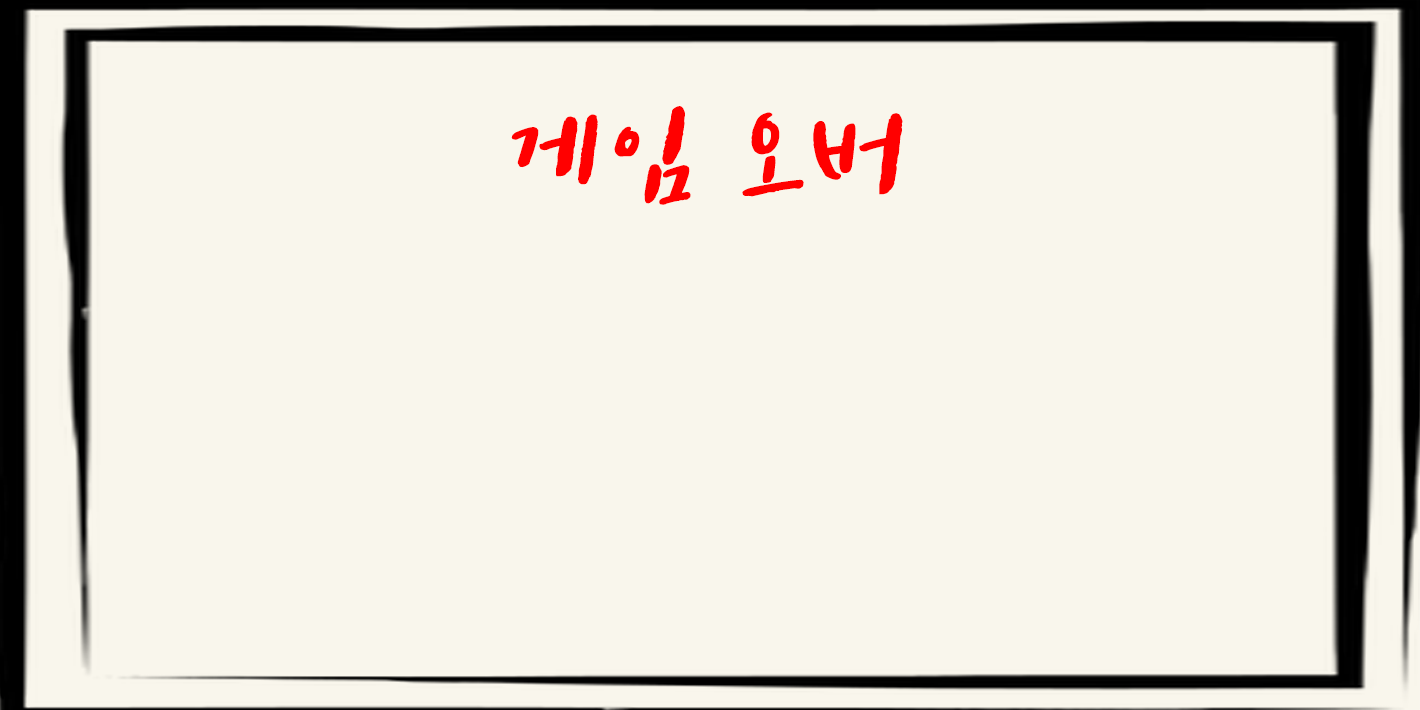 게임 오버